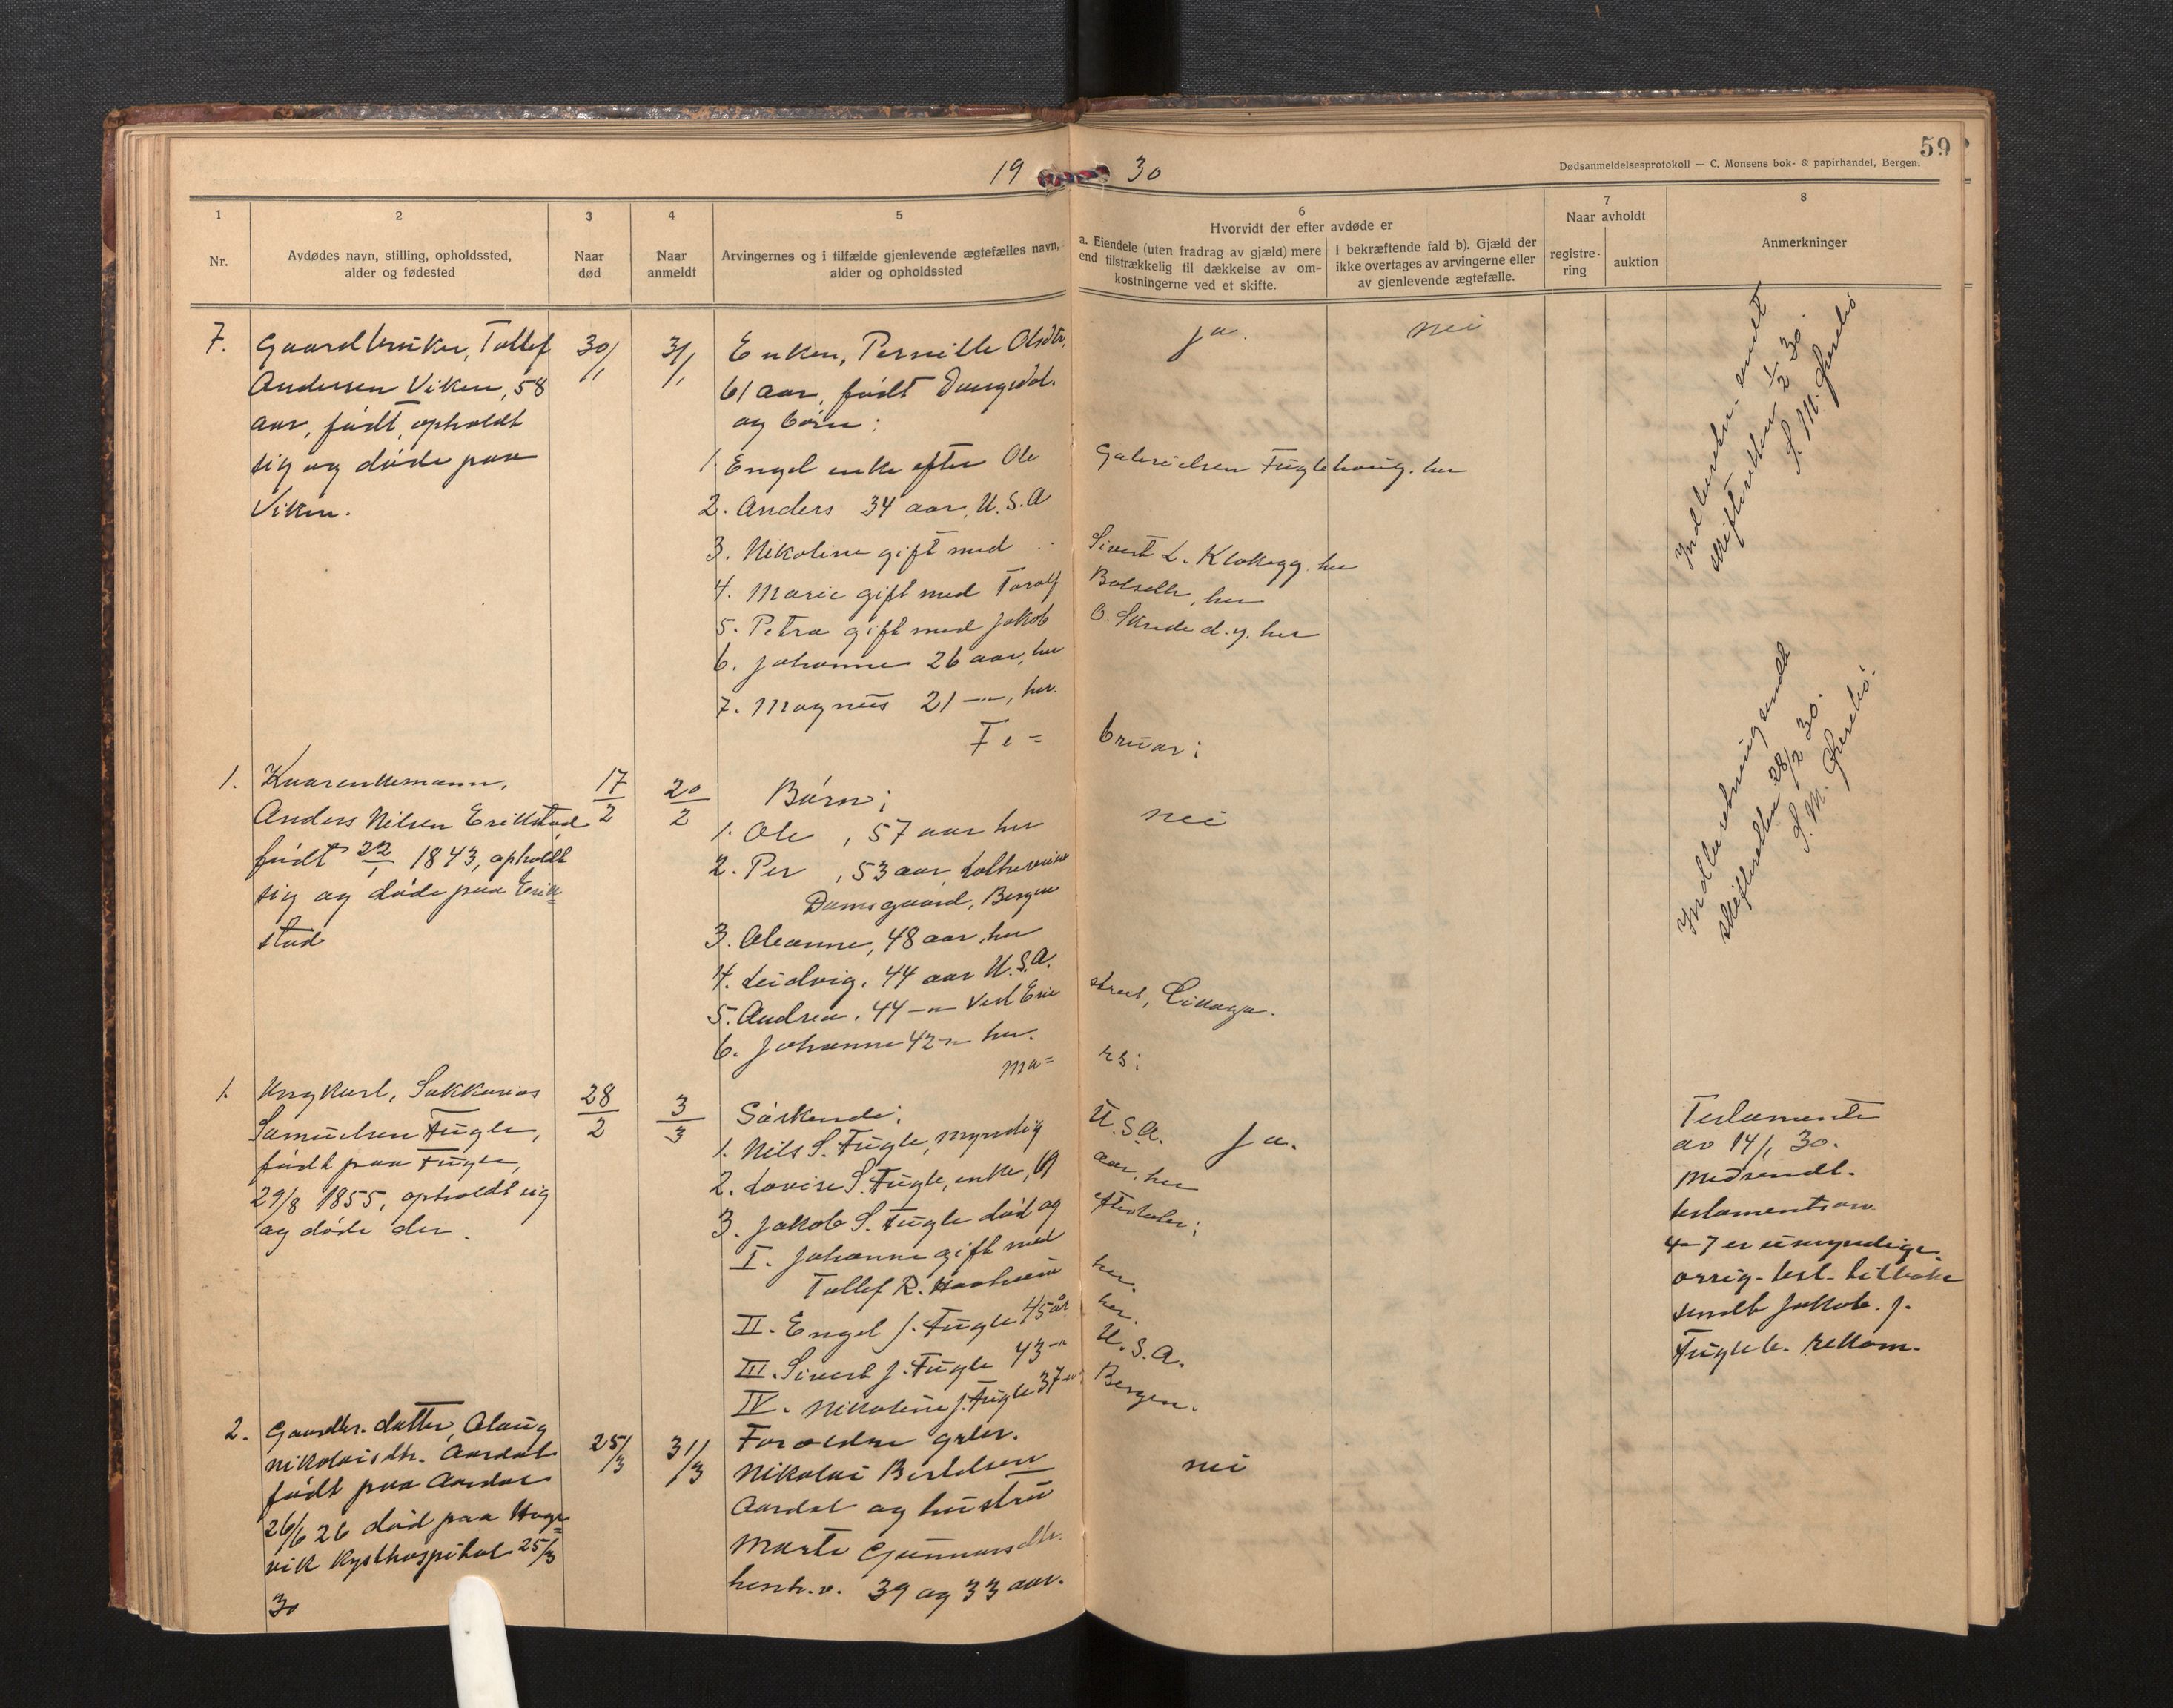 59
Dødsanmeldelsesprotokoll — C. Monsens bok- & papirhandel, Bergen.
19 30
1
Nr.
2
Avdødes navn, stilling, opholdssted,
alder og fødested
3
Naar
død
4
Naar
anmeldt
5
Arvingernes og i tilfælde gjenlevende ægtefælles navn,
alder og opholdssted
6
Hvorvidt der efter avdøde er
a. Eiendele (uten fradrag av gjæld) mere
end tilstrækkelig til dækkelse av om-
kostningerne ved et skifte.
I bekræftende fald b). Gjæld der
ikke overtages av arvingerne eller
av gjenlevende ægtefælle.
7
Naar avholdt
registre-
ring
auktion
8
Anmerkninger
7.
Gaardbruker, Tollef
Andersen Viken, 58
aar, født, opholdt
sig og døde paa
Viken.
30/1
31/1
Enken, Pernille Olsdtr,
61 aar, født
og børn:
1. Engel enke efter Ole Gabrielsen Fuglehaug. her
2. Anders 34 aar, U.S.A
3. Nikoline gift med Sivert L. Klokegg. her
4. Marie gift med Toralf Bolseth, her
5. Petra gift med Jakob O. Skrede d.y. her
6. Johanne 26 aar, her
7. Magnus 21 —"—, her.
ja.
nei
Indberetn. sendt
skifteretten 1/2 30.
S. M.
Fe= bruar:
1.
Kaarenkemann,
Anders Nilsen Erikstad
født 22/1 1843, opholdt
sig og døde paa Erik=
stad
17/2
20/2
Børn:
1. Ole, 57 aar her
2. Per, 53 aar
Damsgaard, Bergen
3. Oleanne, 48 aar, her
4. Ludvig, 44 aar U.S.A.
5. Andrea, 44 —"— Vest Erie street,
6. Johanne 42 —"— her.
nei
Indberetning sendt
skifteretten 28/2 30.
S. M.
Ma= rs:
1.
Ungkarl, Sakkarias
Samuelsen Fugle,
født paa Fugle,
29/8 1855, opholdt sig
og døde der.
28/2
3/3
Søskende:
1. Nils S. Fugle, myndig U.S.A.
2. Lovise S. Fugle, enke, 69 aar, her
3. Jakob S. Fugle død og efterlater:
I. Johanne gift med
Tollef R. her.
II. Engel J. Fugle 45 år her.
III. Sivert J. Fugle 43 —"— U.S.A.
IV. Nikoline J. Fugle 37 —"— Bergen.
ja.
Testamente
av 14/1 30.
Medsendt.
testamentsarv.
4-7 er umyndige.
orrig. test. tilbake
sendt Jakob. J.
Fugle. rekom.
2.
Gaardbr. datter, Olaug
Nikolaisdtr. Aardal
født paa Aardal
26/6 26 død paa Hage=
vik Kysthospital 25/3
30
25/3
31/3
Forældre
Nikolai Bertelsen
Aardal og hustru
Marte Gunnarsdtr.
henh.v. 39 og 33 aar.
nei